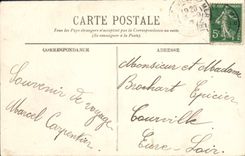 CARTE POSTALE
Tous les pays étrangers n'acceptent pas la Correspondance au recto
(Se renseigner à la Poste)
CORRESPONDANCE
ADRESSE
Souvenir de voyage
Marcel Carpentier
Monsieur et Madame
Brochart Epicier
Courville
Eure-Loir